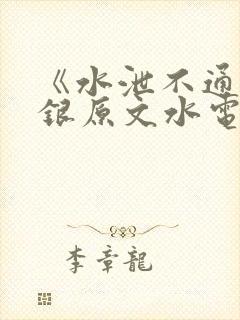 《水泄不通
銀原文水電
李章龍